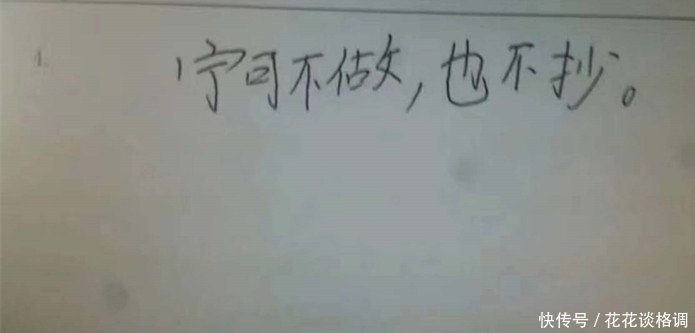 1.
宁可不做,也不抄。
快传号/花花谈格调